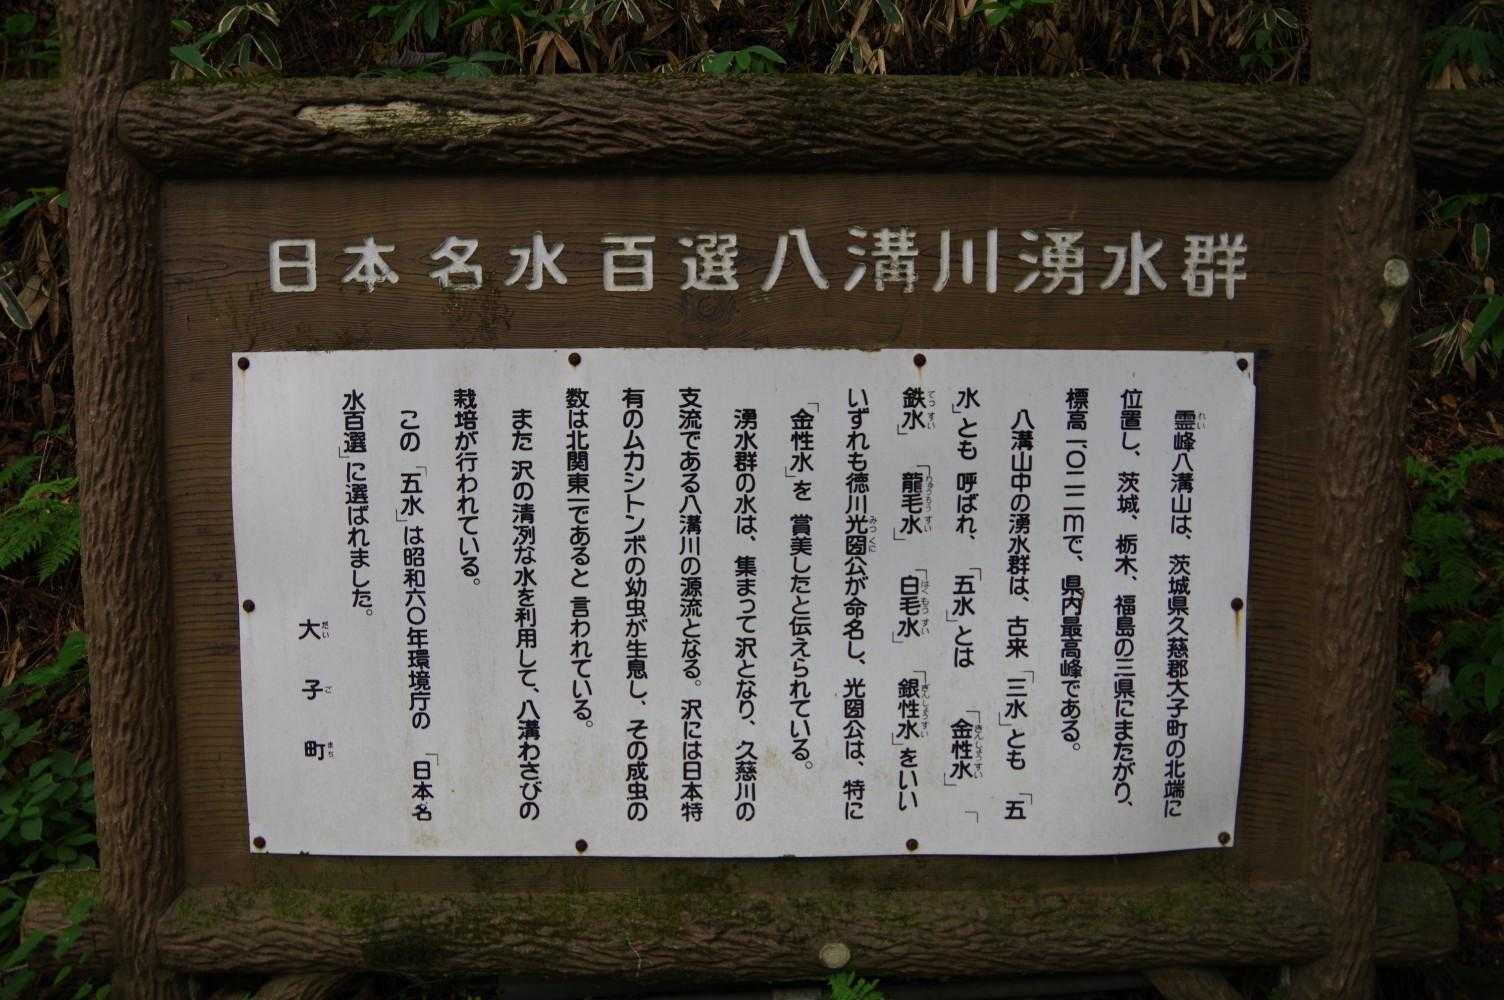 日本名水百選八溝川湧水群
霊峰八溝山は、茨城県久慈郡大子町の北端に
位置し、茨城、栃木、福島の三県にまたがり、
標高一〇二二mで、県内最高峰である。
八溝山中の湧水群は、古来「三水」とも「五
水」とも呼ばれ、「五水」とは「金性水」「
鉄水」「龍毛水」「白毛水」「銀性水」をいい
いずれも徳川光圀公が命名し、光圀公は、特に
「金性水」を賞美したと伝えられている。
湧水群の水は、集まって沢となり、久慈川の
支流である八溝川の源流となる。沢には日本特
有のムカシトンボの幼虫が生息し、その成虫の
数は北関東一であると言われている。
また沢の清冽な水を利用して、八溝わさびの
栽培が行われている。
この「五水」は昭和六〇年環境庁の「日本名
水百選」に選ばれました。
大子町